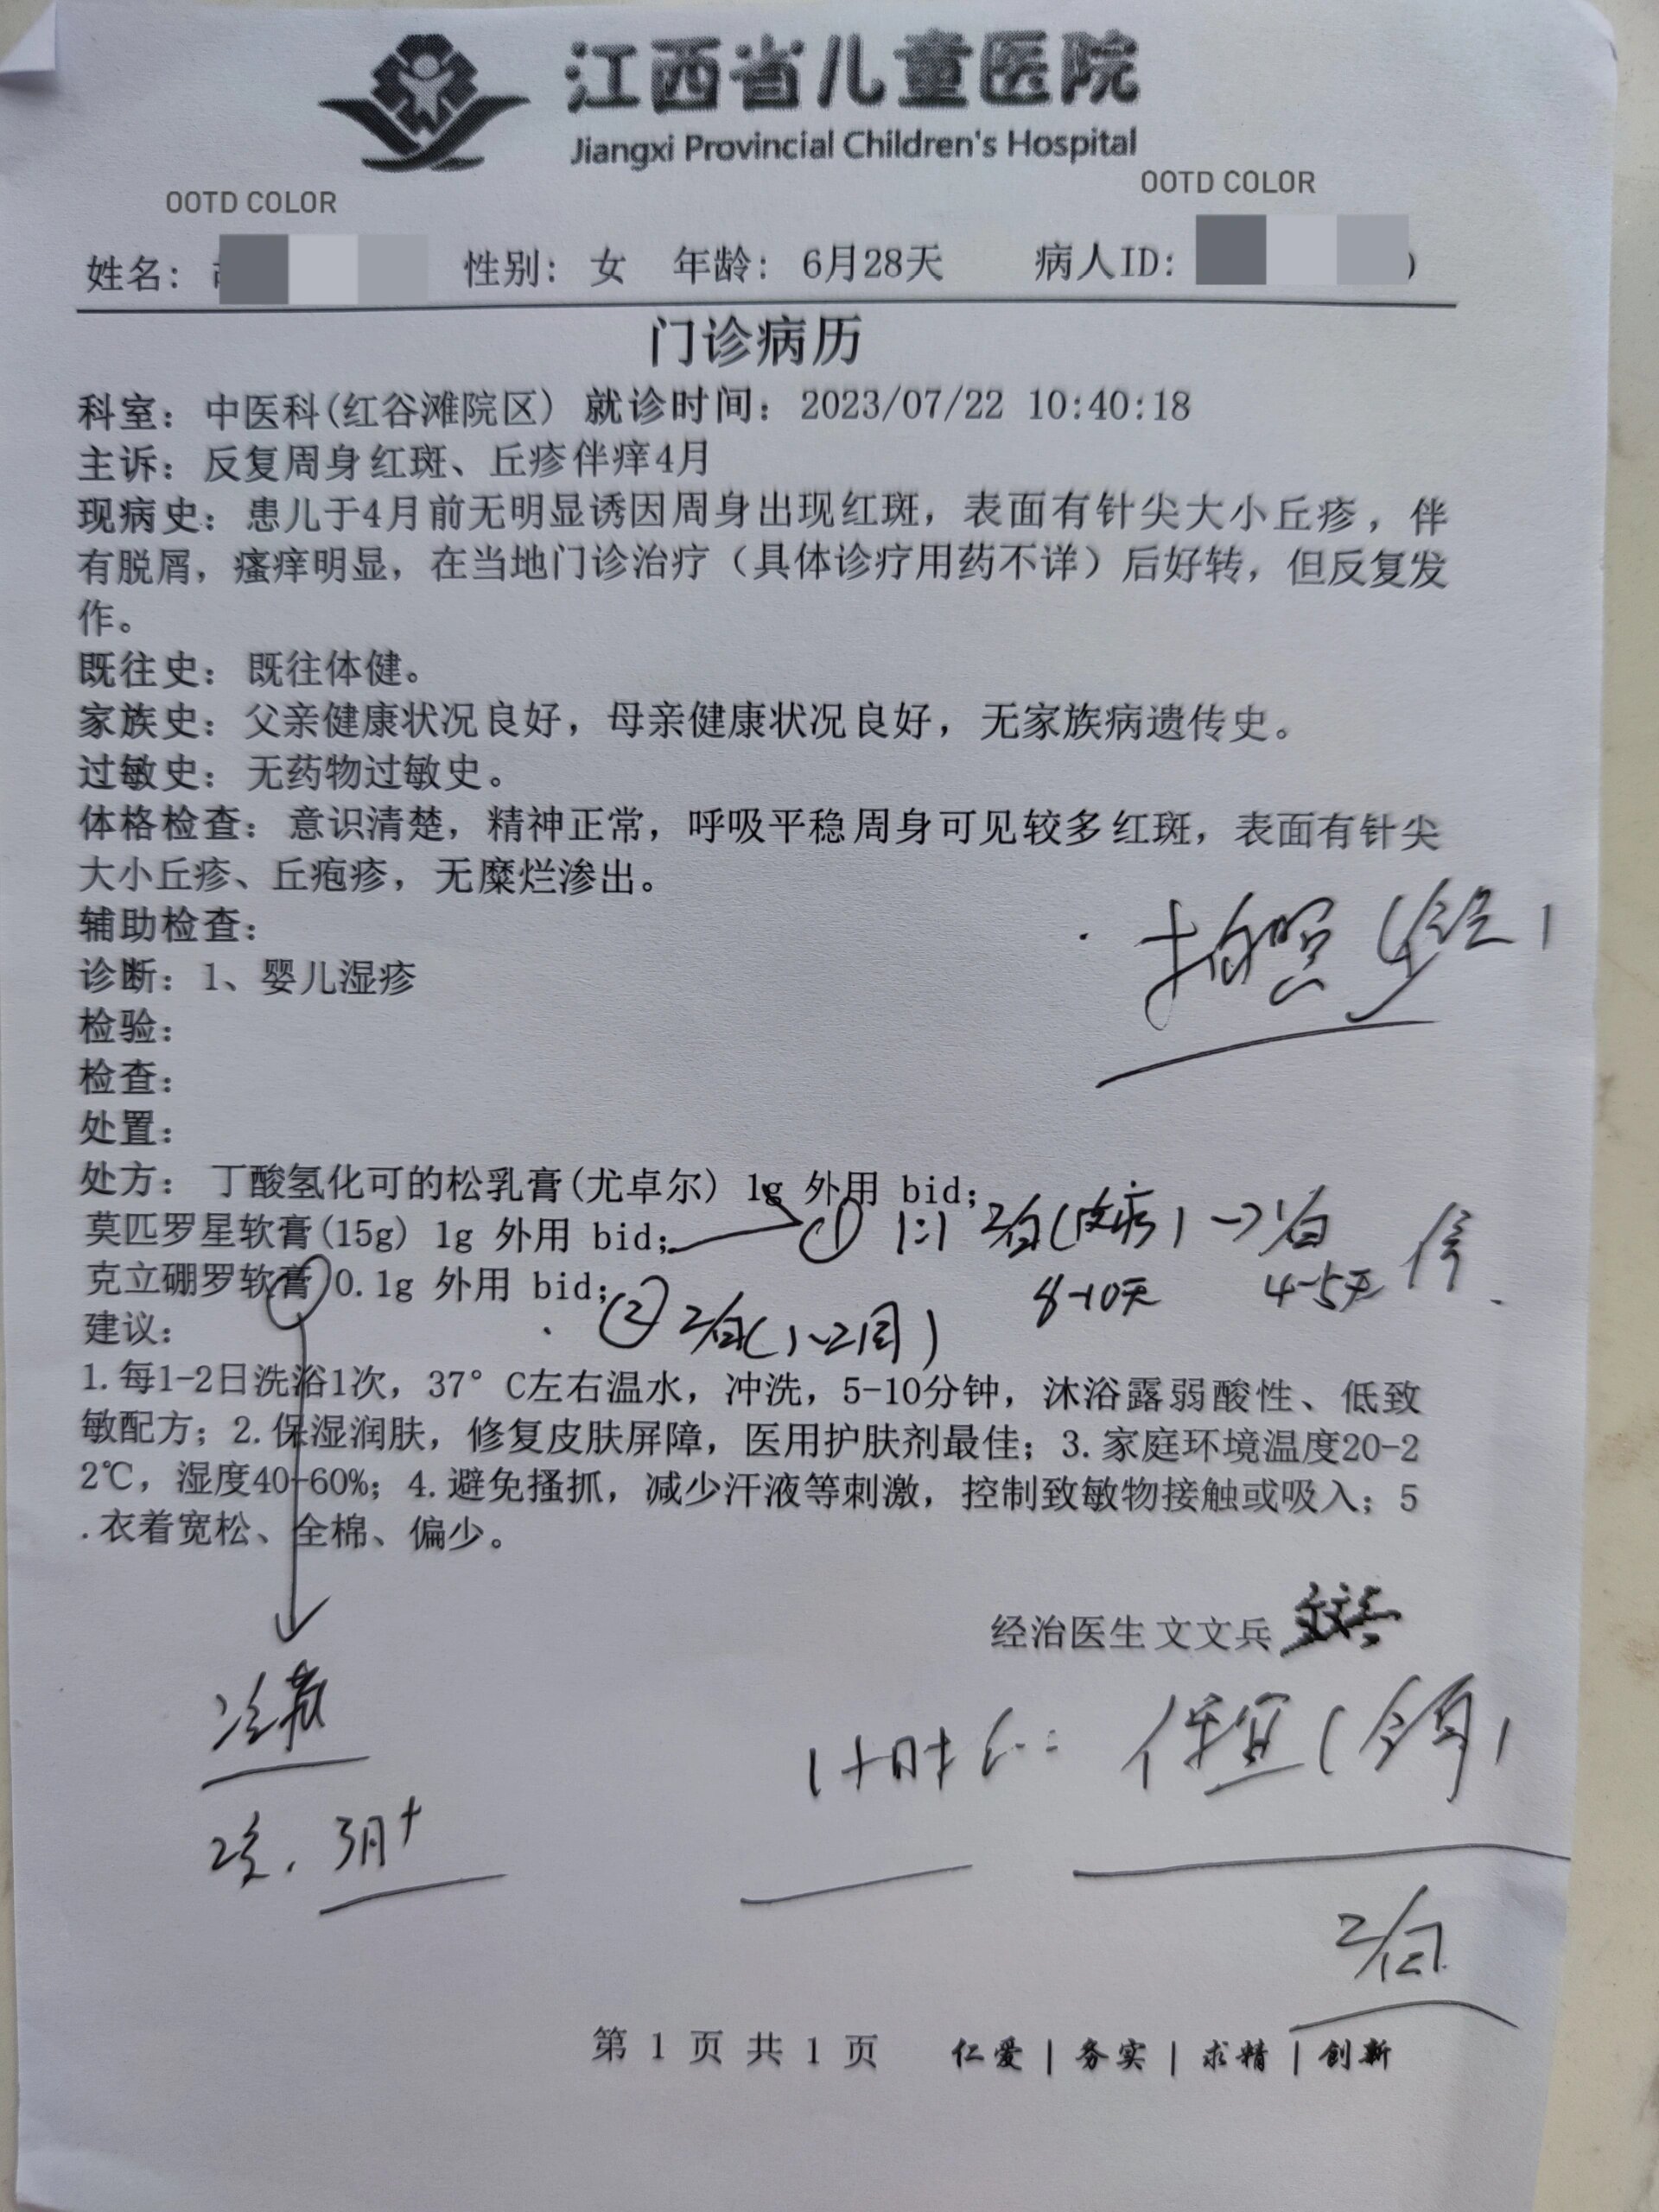 江西省儿童医院
Jiangxi Provincial Children's Hospital
OOTD COLOR
OOTD COLOR
姓名: 性别: 女 年龄: 6月28天 病人ID: )
门诊病历
科室: 中医科(红谷滩院区) 就诊时间: 2023/07/22 10:40:18
主诉: 反复周身红斑、丘疹伴痒4月
现病史: 患儿于4月前无明显诱因周身出现红斑，表面有针尖大小丘疹，伴
有脱屑，瘙痒明显，在当地门诊治疗（具体诊疗用药不详）后好转，但反复发
作。
既往史: 既往体健。
家族史: 父亲健康状况良好，母亲健康状况良好，无家族病遗传史。
过敏史: 无药物过敏史。
体格检查: 意识清楚，精神正常，呼吸平稳周身可见较多红斑，表面有针尖
大小丘疹、丘疱疹，无糜烂渗出。
辅助检查:
拍照
诊断: 1、婴儿湿疹
检验:
检查:
处置:
处方: 丁酸氢化可的松乳膏(尤卓尔) 1g 外用 bid;
莫匹罗星软膏(15g) 1g 外用 bid; ① 1:1 2/日(皮疹) → 1/日 停
克立硼罗软膏 0.1g 外用 bid; 8-10天 4-5天
② 2/日(1~2周)
建议:
1.每1-2日洗浴1次，37°C左右温水，冲洗，5-10分钟，沐浴露弱酸性、低致
敏配方；2.保湿润肤，修复皮肤屏障，医用护肤剂最佳；3.家庭环境温度20-2
2℃，湿度40-60%；4.避免搔抓，减少汗液等刺激，控制致敏物接触或吸入；5
.衣着宽松、全棉、偏少。
经治医生 文文兵
冷藏
3月+
1小时
2/日
第 1 页 共 1 页 仁爱 | 务实 | 求精 | 创新